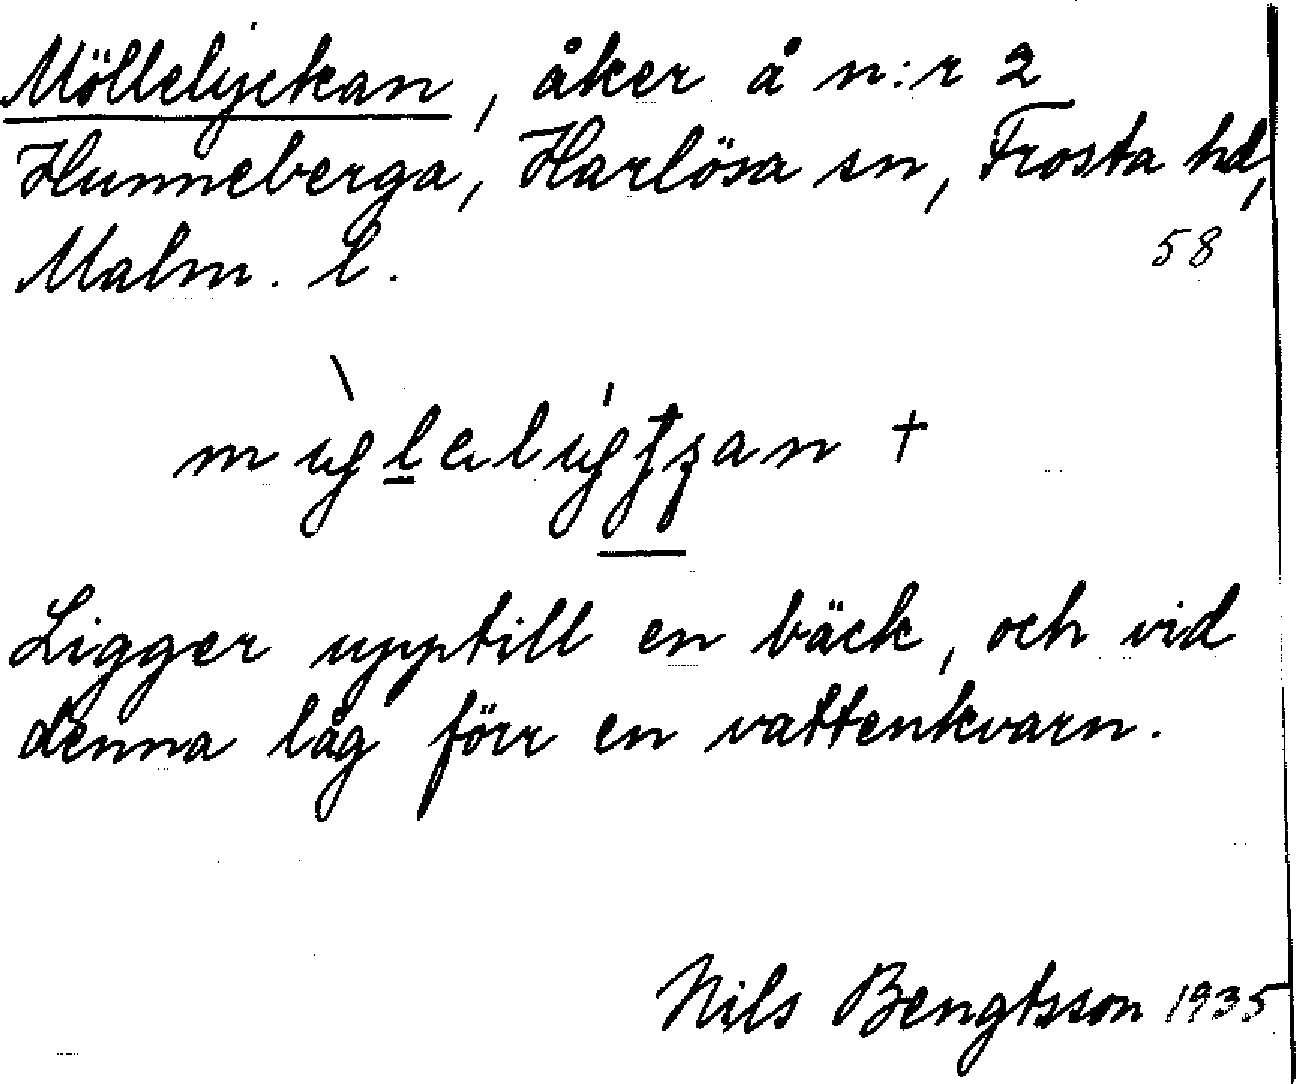 Möllelyckan, åker å n:r 2
Hunneberga, Harlösa sn, Frosta hd,
Malm. l.
58
Ligger upptill en bäck, och vid
denna låg förr en vattenkvarn.
Nils Bengtsson 1935